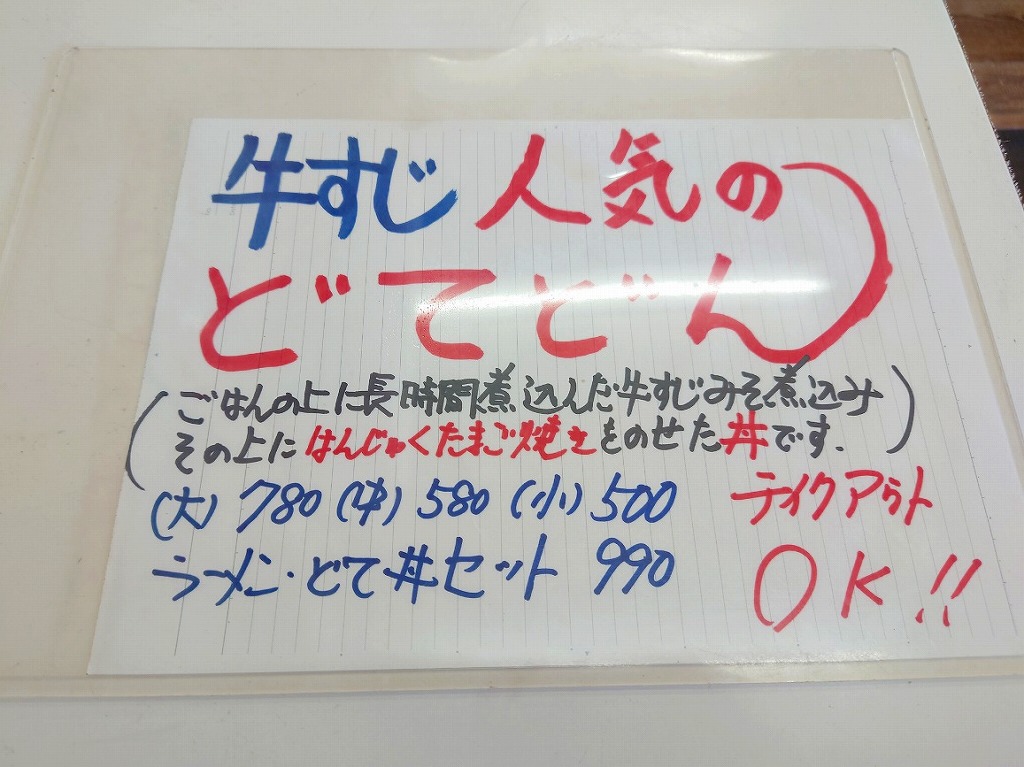 牛すじ 人気の
どてどん
(ごはんの上に長時間煮込んだ牛すじみそ煮込み
その上にはんじゅくたまご焼きをのせた丼です.)
(大) 780 (中) 580 (小) 500
ラーメン・どて丼セット 990
テイクアウト
OK!!